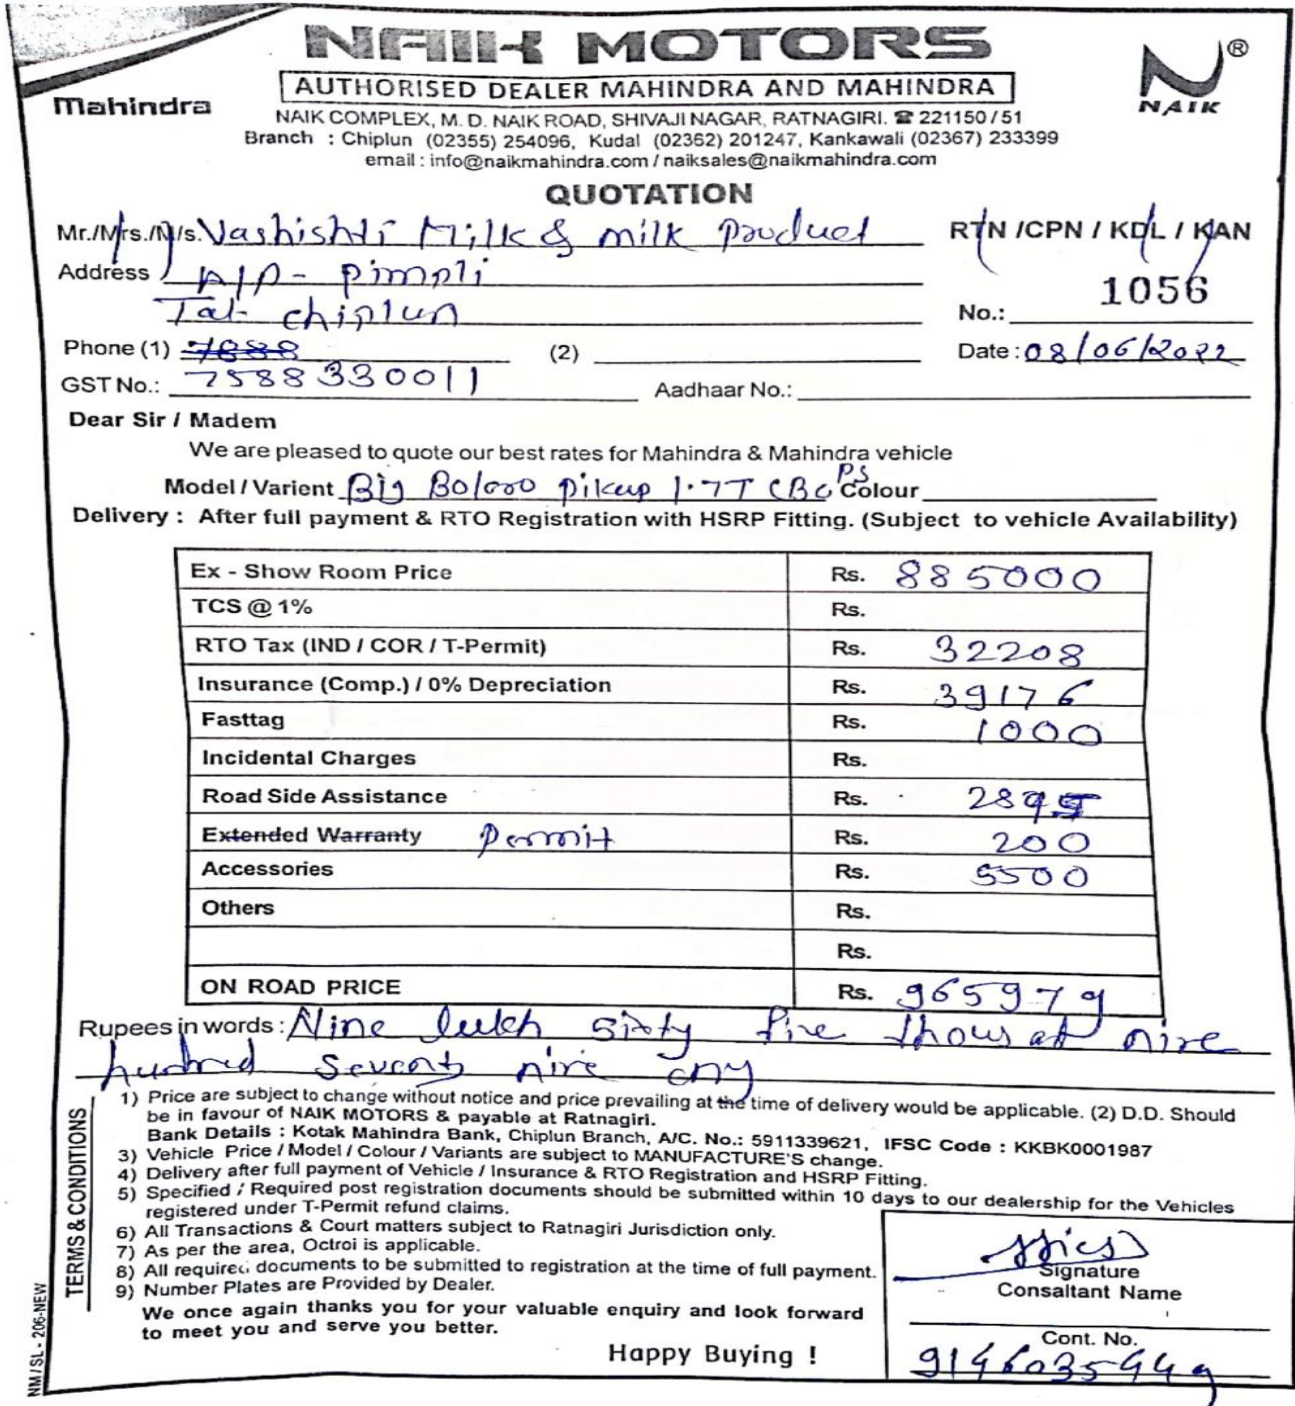 NAIK MOTORS
AUTHORISED DEALER MAHINDRA AND MAHINDRA
Mahindra
NAIK ®
NAIK COMPLEX, M. D. NAIK ROAD, SHIVAJI NAGAR, RATNAGIRI. ☎ 221150/51
Branch : Chiplun (02355) 254096, Kudal (02362) 201247, Kankawali (02367) 233399
email : info@naikmahindra.com / naiksales@naikmahindra.com
QUOTATION
Mr./Mrs./M/s. Vashishti Milk & milk product RTN /CPN / KDL / KAN
Address A/P - pimpli
Tal- chiplun No.: 1056
Phone (1) 7888 (2) Date : 08/06/2022
GST No.: 7588330011 Aadhaar No.:
Dear Sir / Madem
We are pleased to quote our best rates for Mahindra & Mahindra vehicle
Model / Varient Big Boloro pikup 1.7T CBC PS Colour
Delivery : After full payment & RTO Registration with HSRP Fitting. (Subject to vehicle Availability)
Ex - Show Room Price Rs. 885000
TCS @ 1% Rs.
RTO Tax (IND / COR / T-Permit) Rs. 32208
Insurance (Comp.) / 0% Depreciation Rs. 39176
Fasttag Rs. 1000
Incidental Charges Rs.
Road Side Assistance Rs. 2895
Extended Warranty Permit Rs. 200
Accessories Rs. 5500
Others Rs.
Rs.
ON ROAD PRICE Rs. 965979
Rupees in words : Nine lukh sixty five nine
hundred seventy nine
TERMS & CONDITIONS
1) Price are subject to change without notice and price prevailing at the time of delivery would be applicable. (2) D.D. Should
be in favour of NAIK MOTORS & payable at Ratnagiri.
Bank Details : Kotak Mahindra Bank, Chiplun Branch, A/C. No.: 5911339621, IFSC Code : KKBK0001987
3) Vehicle Price / Model / Colour / Variants are subject to MANUFACTURE'S change.
4) Delivery after full payment of Vehicle / Insurance & RTO Registration and HSRP Fitting.
5) Specified / Required post registration documents should be submitted within 10 days to our dealership for the Vehicles
registered under T-Permit refund claims.
6) All Transactions & Court matters subject to Ratnagiri Jurisdiction only.
7) As per the area, Octroi is applicable.
8) All required documents to be submitted to registration at the time of full payment.
9) Number Plates are Provided by Dealer.
We once again thanks you for your valuable enquiry and look forward
to meet you and serve you better.
Happy Buying !
Signature
Consaltant Name
Cont. No.
9146035449
NM / SL - 206-NEW